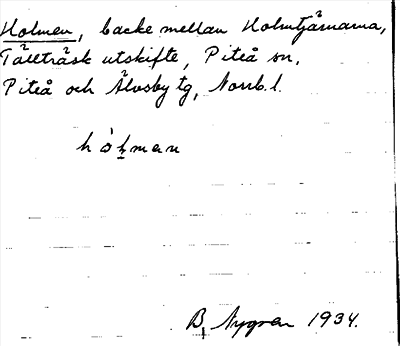 Holmen, backe mellan Holmtjärnarna,
Tällträsk utskifte, Piteå sn,
Piteå och Älvsby tg, Norrb. l.
hòḷman
B. Nygren 1934.